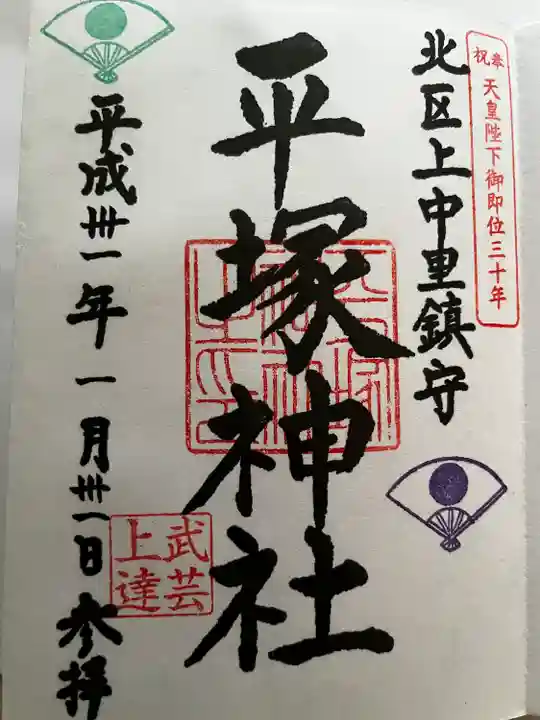 奉祝 天皇陛下御即位三十年
北区上中里鎮守
平塚神社
武芸
上達
平成卅一年一月卅一日参拝